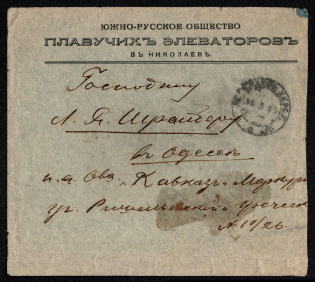 ЮЖНО-РУССКОЕ ОБЩЕСТВО
ПЛАВУЧИХЪ ЭЛЕВАТОРОВЪ
ВЪ НИКОЛАЕВѢ.
Господину
Л. Я. Шрайберу
въ Одессѣ
п. а. Ова „Кавказъ и Меркурій
уг. Ришельевской и Греческ
№ 10/26